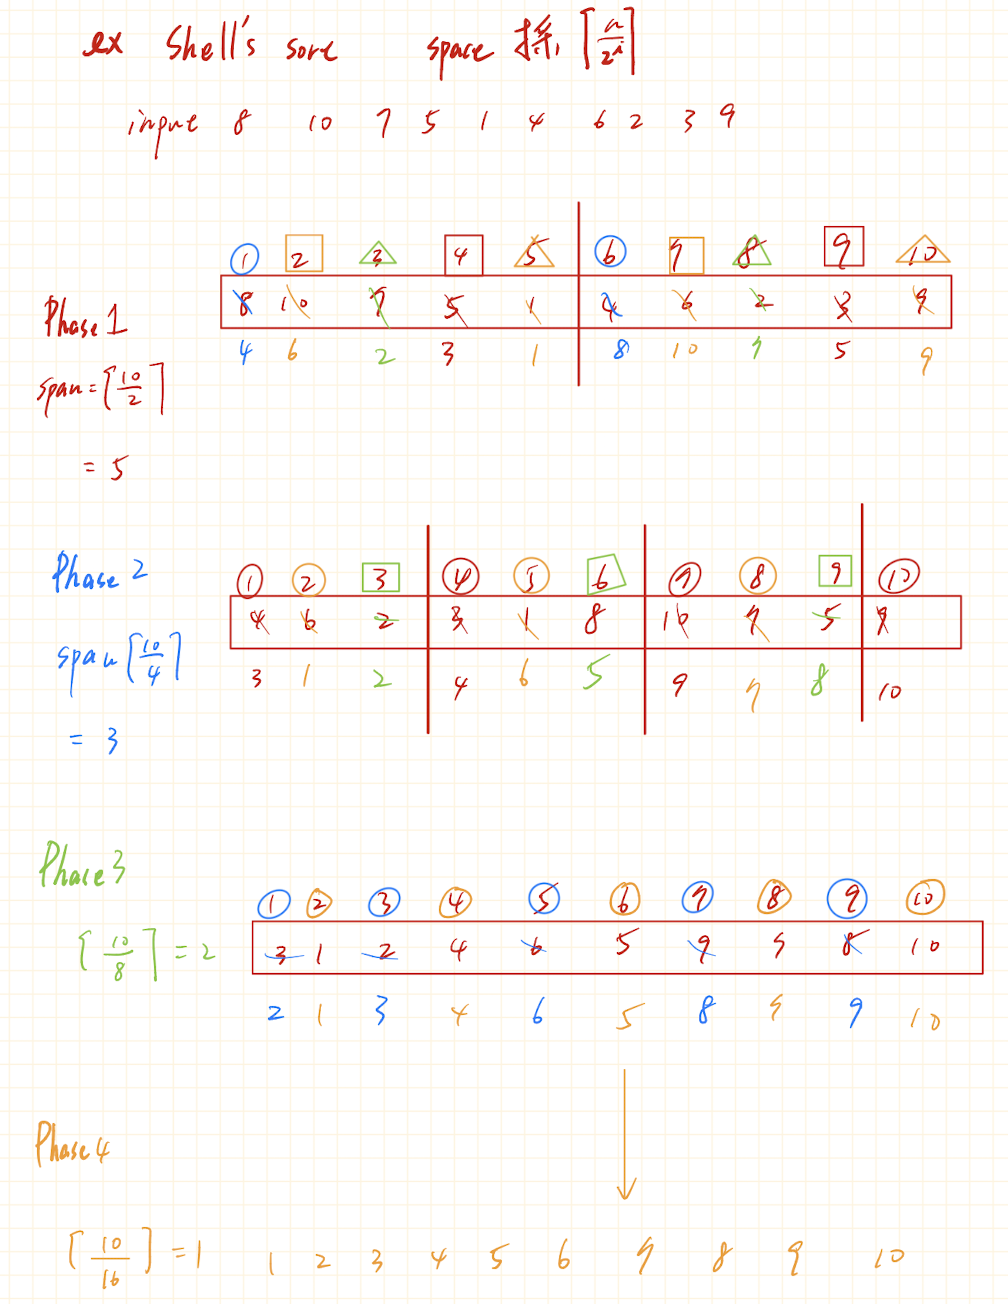 ex Shell's sort space 採 ⌈n/2^i⌉
input 8 10 7 5 1 4 6 2 3 9
1 2 3 4 5 6 7 8 9 10
8 10 7 5 1 4 6 2 3 9
Phase 1
4 6 2 3 1 8 10 7 5 9
span = ⌈10/2⌉
= 5
Phase 2
1 2 3 4 5 6 7 8 9 10
4 6 2 3 1 8 10 7 5 9
span ⌈10/4⌉
3 1 2 4 6 5 9 7 8 10
= 3
Phase 3
1 2 3 4 5 6 7 8 9 10
⌈10/8⌉ = 2
3 1 2 4 6 5 9 7 8 10
2 1 3 4 6 5 8 7 9 10
Phase 4
⌈10/16⌉ = 1 1 2 3 4 5 6 7 8 9 10